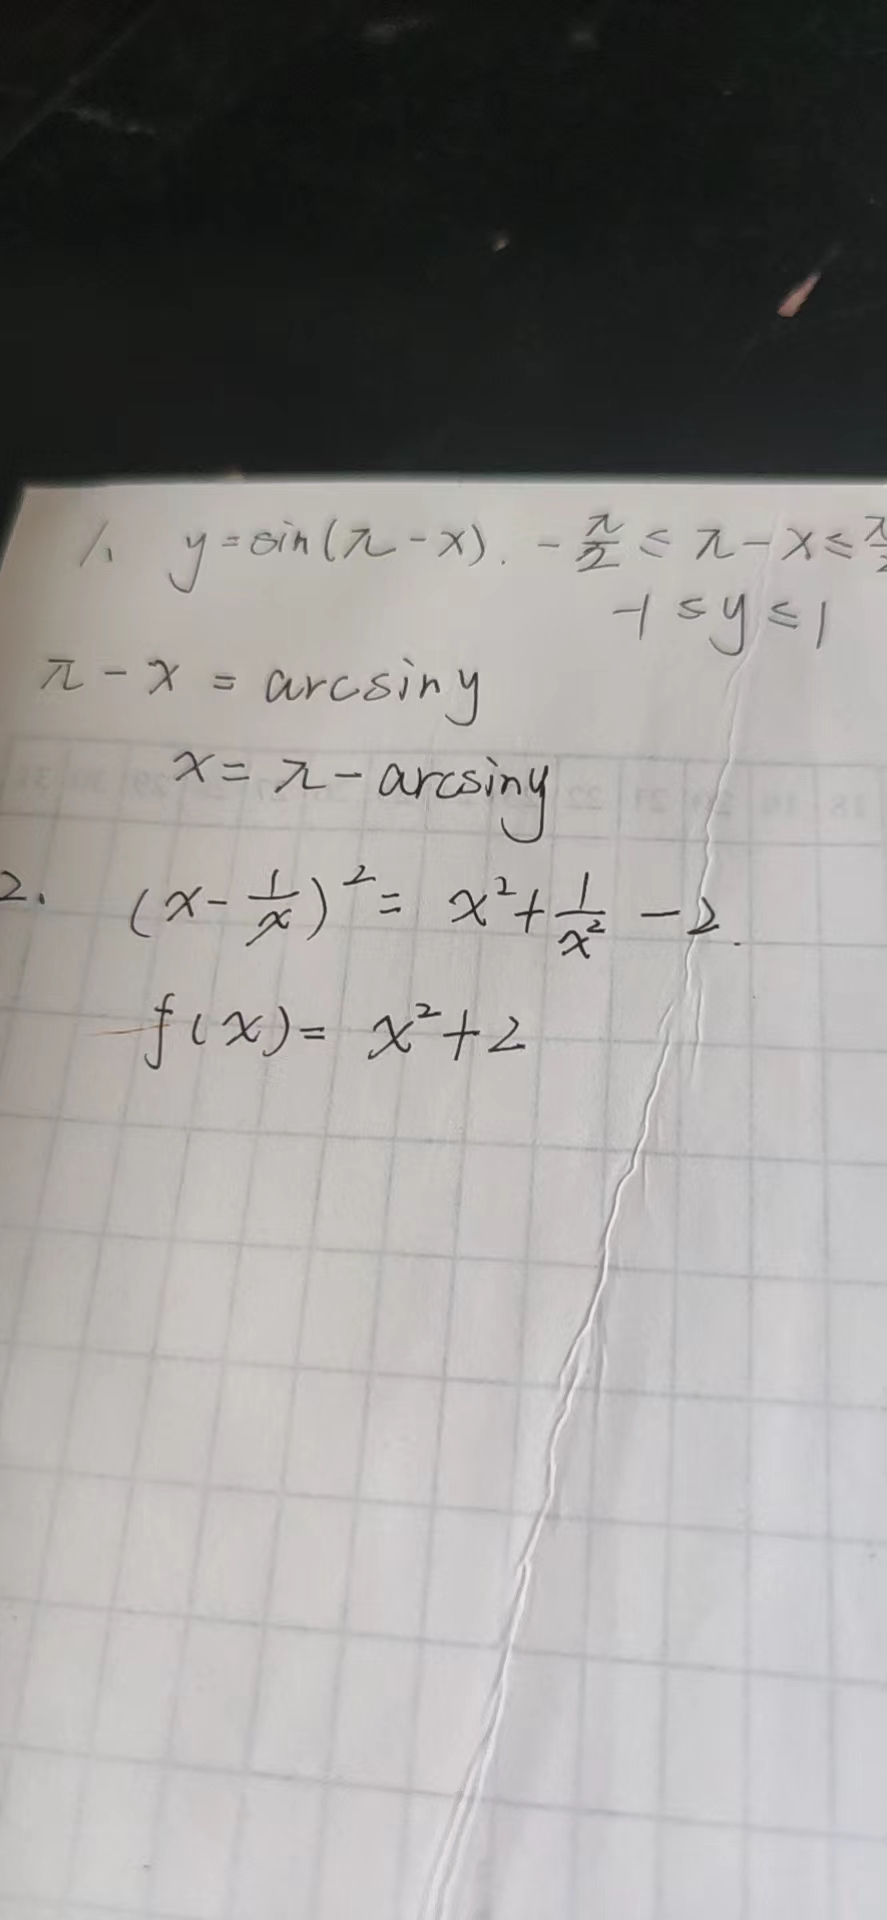 1. y=sin(π-x). -π/2 ≤ π-x ≤ π/2
-1 ≤ y ≤ 1
π-x = arcsiny
x = π-arcsiny
2. (x-1/x)² = x²+1/x² -2.
f(x) = x²+2